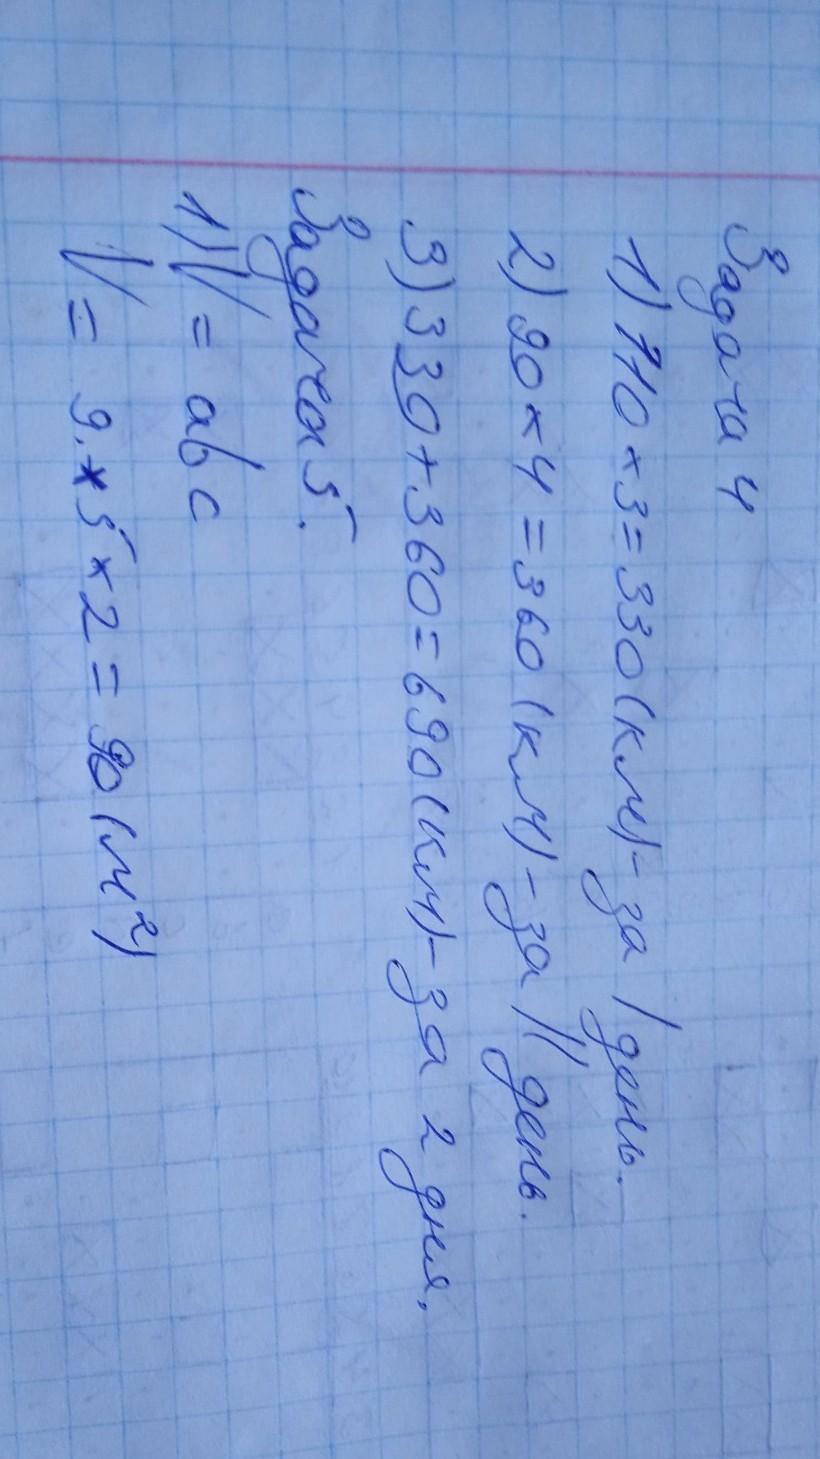 Задача 4
1) 110 × 3 = 330 (км) - за I день.
2) 90 × 4 = 360 (км) - за II день.
3) 330 + 360 = 690 (км) - за 2 дня.
Задача 5.
1) V = abc
V = 9 * 5 × 2 = 90 (м²)